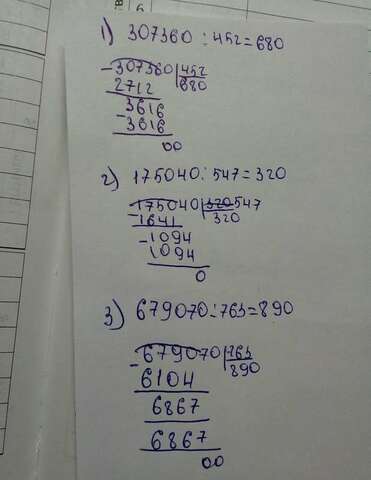 1) 307360 : 452 = 680
- 307360 | 452
2712 680
- 3616
3616
00
2) 175040 : 547 = 320
- 175040 | 320 547
1641 320
- 1094
1094
0
3) 679070 : 763 = 890
- 679070 | 763
6104 890
6867
6867
00